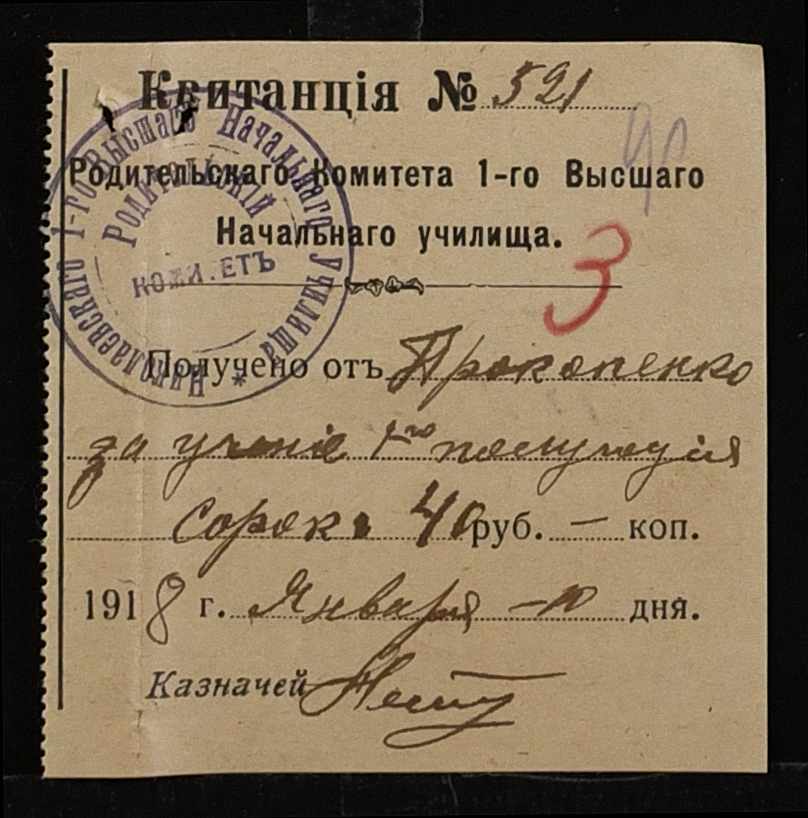 Квитанція № 521
Родительскаго Комитета 1-го Высшаго
Начальнаго училища.
3
Получено отъ Прокопенко
за ученіе 1го полугодія
сорокъ 40 руб. — коп.
1918 г. Января – 10 дня.
Казначей
Николаевскаго 1-го Высшаго Начальнаго Училища *
Родительскій
Комитетъ